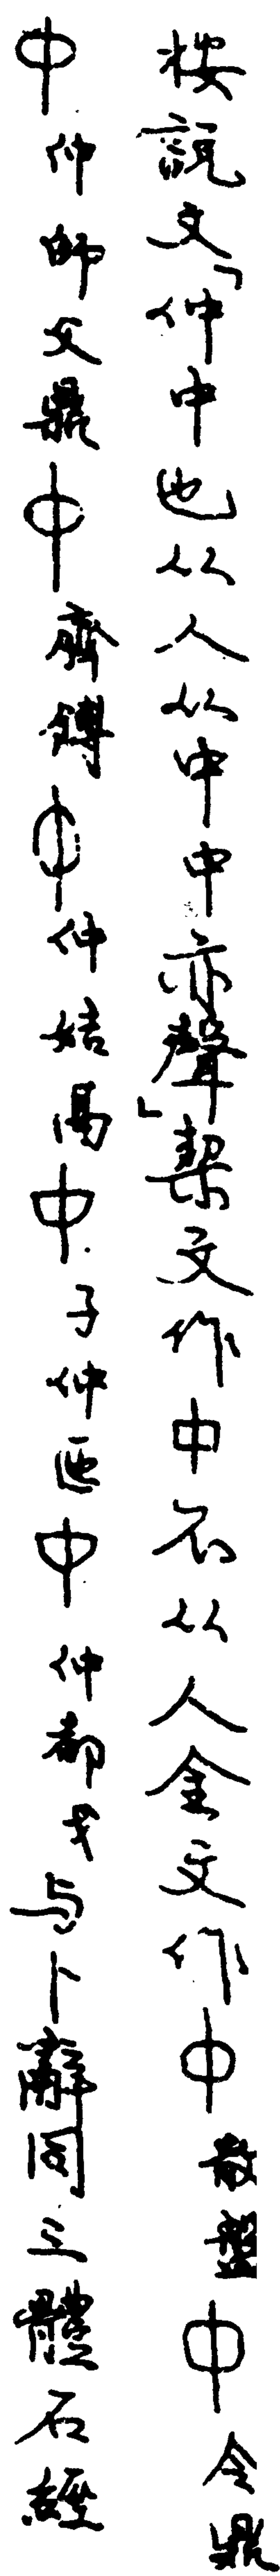 按說文「仲中也从人从中中亦聲」栔文作中不从人金文作中散盤中令鼎
中仲師父鼎中齊鎛中仲姞鬲中子仲匜中仲都戈与卜辭同三體石經